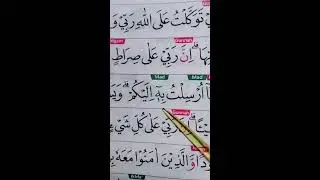 تَوَكَّلْتُ عَلَى اللّٰهِ رَبِّيْ وَ
Ghunnah
هَا ؕ اِنَّ رَبِّيْ عَلٰى صِرَاطٍ
Mad Mad
اُرْسِلْتُ بِهٖۤ اِلَيْكُمْ ؕ وَيَسْ
Ghunnah
ـًٔا ؕ اِنَّ رَبِّيْ عَلٰى كُلِّ شَيْ
وَّالَّذِيْنَ اٰمَنُوْا مَعَهٗ بِ